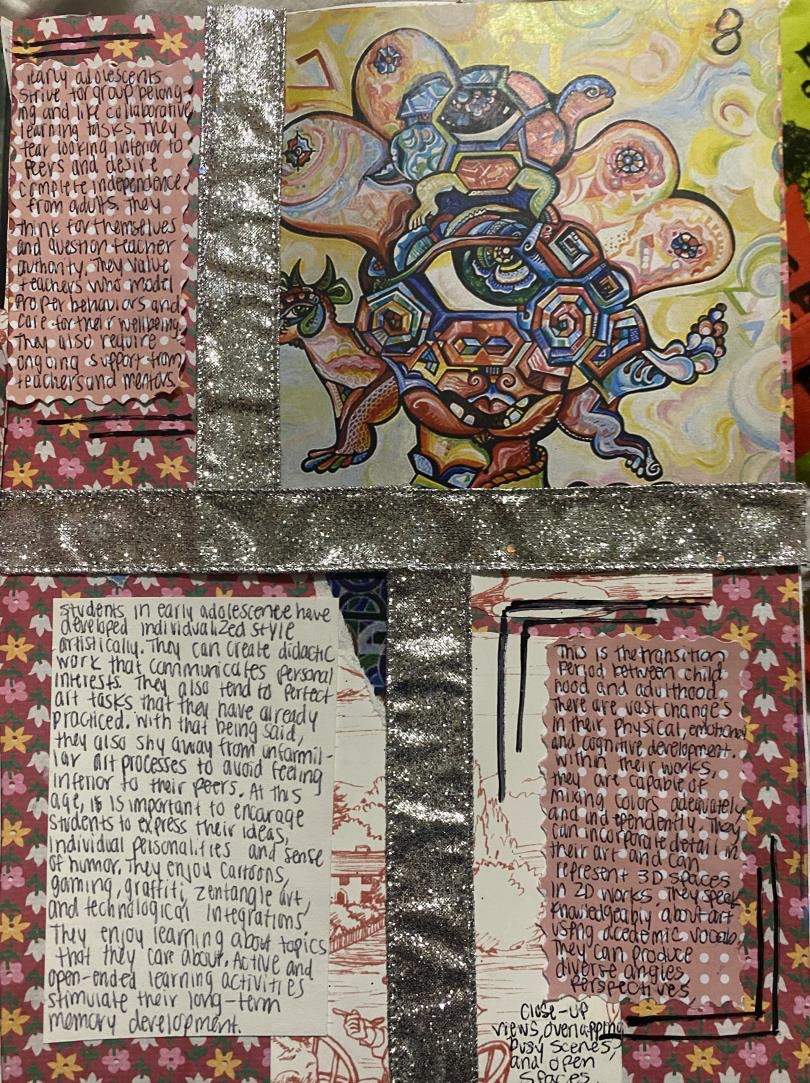 8
Early adolescents
strive for group belong
ing and like collaborative
learning tasks. They
fear looking inferior to
peers and desire
complete independence
from adults. They
think for themselves
and question teacher
authority. They value
teachers who model
proper behaviors and
care for their wellbeing.
They also require
ongoing support from
teachers and mentors.
Students in early adolescence have
developed individualized style
artistically. They can create didactic
work that communicates personal
interests. They also tend to perfect
art tasks that they have already
practiced. With that being said,
they also shy away from unfarmil-
iar art processes to avoid feeling
inferior to their peers. At this
age, it is important to encorage
students to express their ideas,
individual personalities and sense
of humor. They enjoy cartoons,
gaming, graffiti, zentangle art,
and technological integrations
They enjoy learning about topics
that they care about. Active and
open-ended learning activities
stimulate their long-term
memory development.
This is the transition
period between child
hood and adulthood.
There are vast changes
in their physical, emotional
and cognitive development.
Within their works,
they are capable of
mixing colors adequately
and independently. They
can incorporate detail in
their art and can
represent 3D spaces
in 2D works. They speak
knowledgeably about art
using academic vocab.
They can produce
diverse angles,
perspectives,
close-up
views, overlapping
busy scenes,
and open
spaces